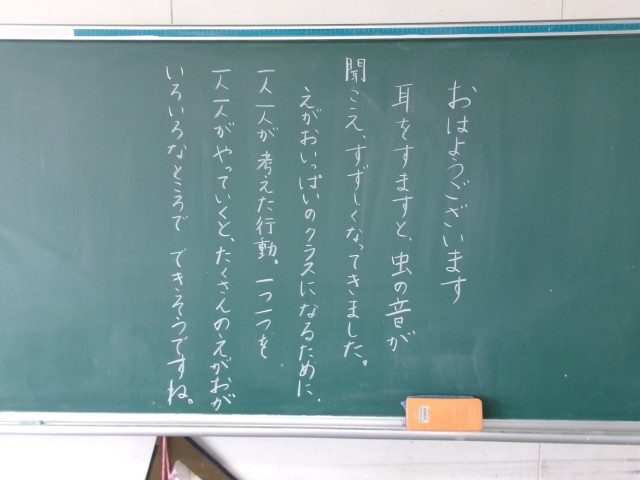 おはようございます
耳をすますと、虫の音が
聞こえ、すずしくなってきました。
えがおいっぱいのクラスになるために、
一人一人が考えた行動。一つ一つを
一人一人がやっていくと、たくさんのえがおが
いろいろなところで できそうですね。